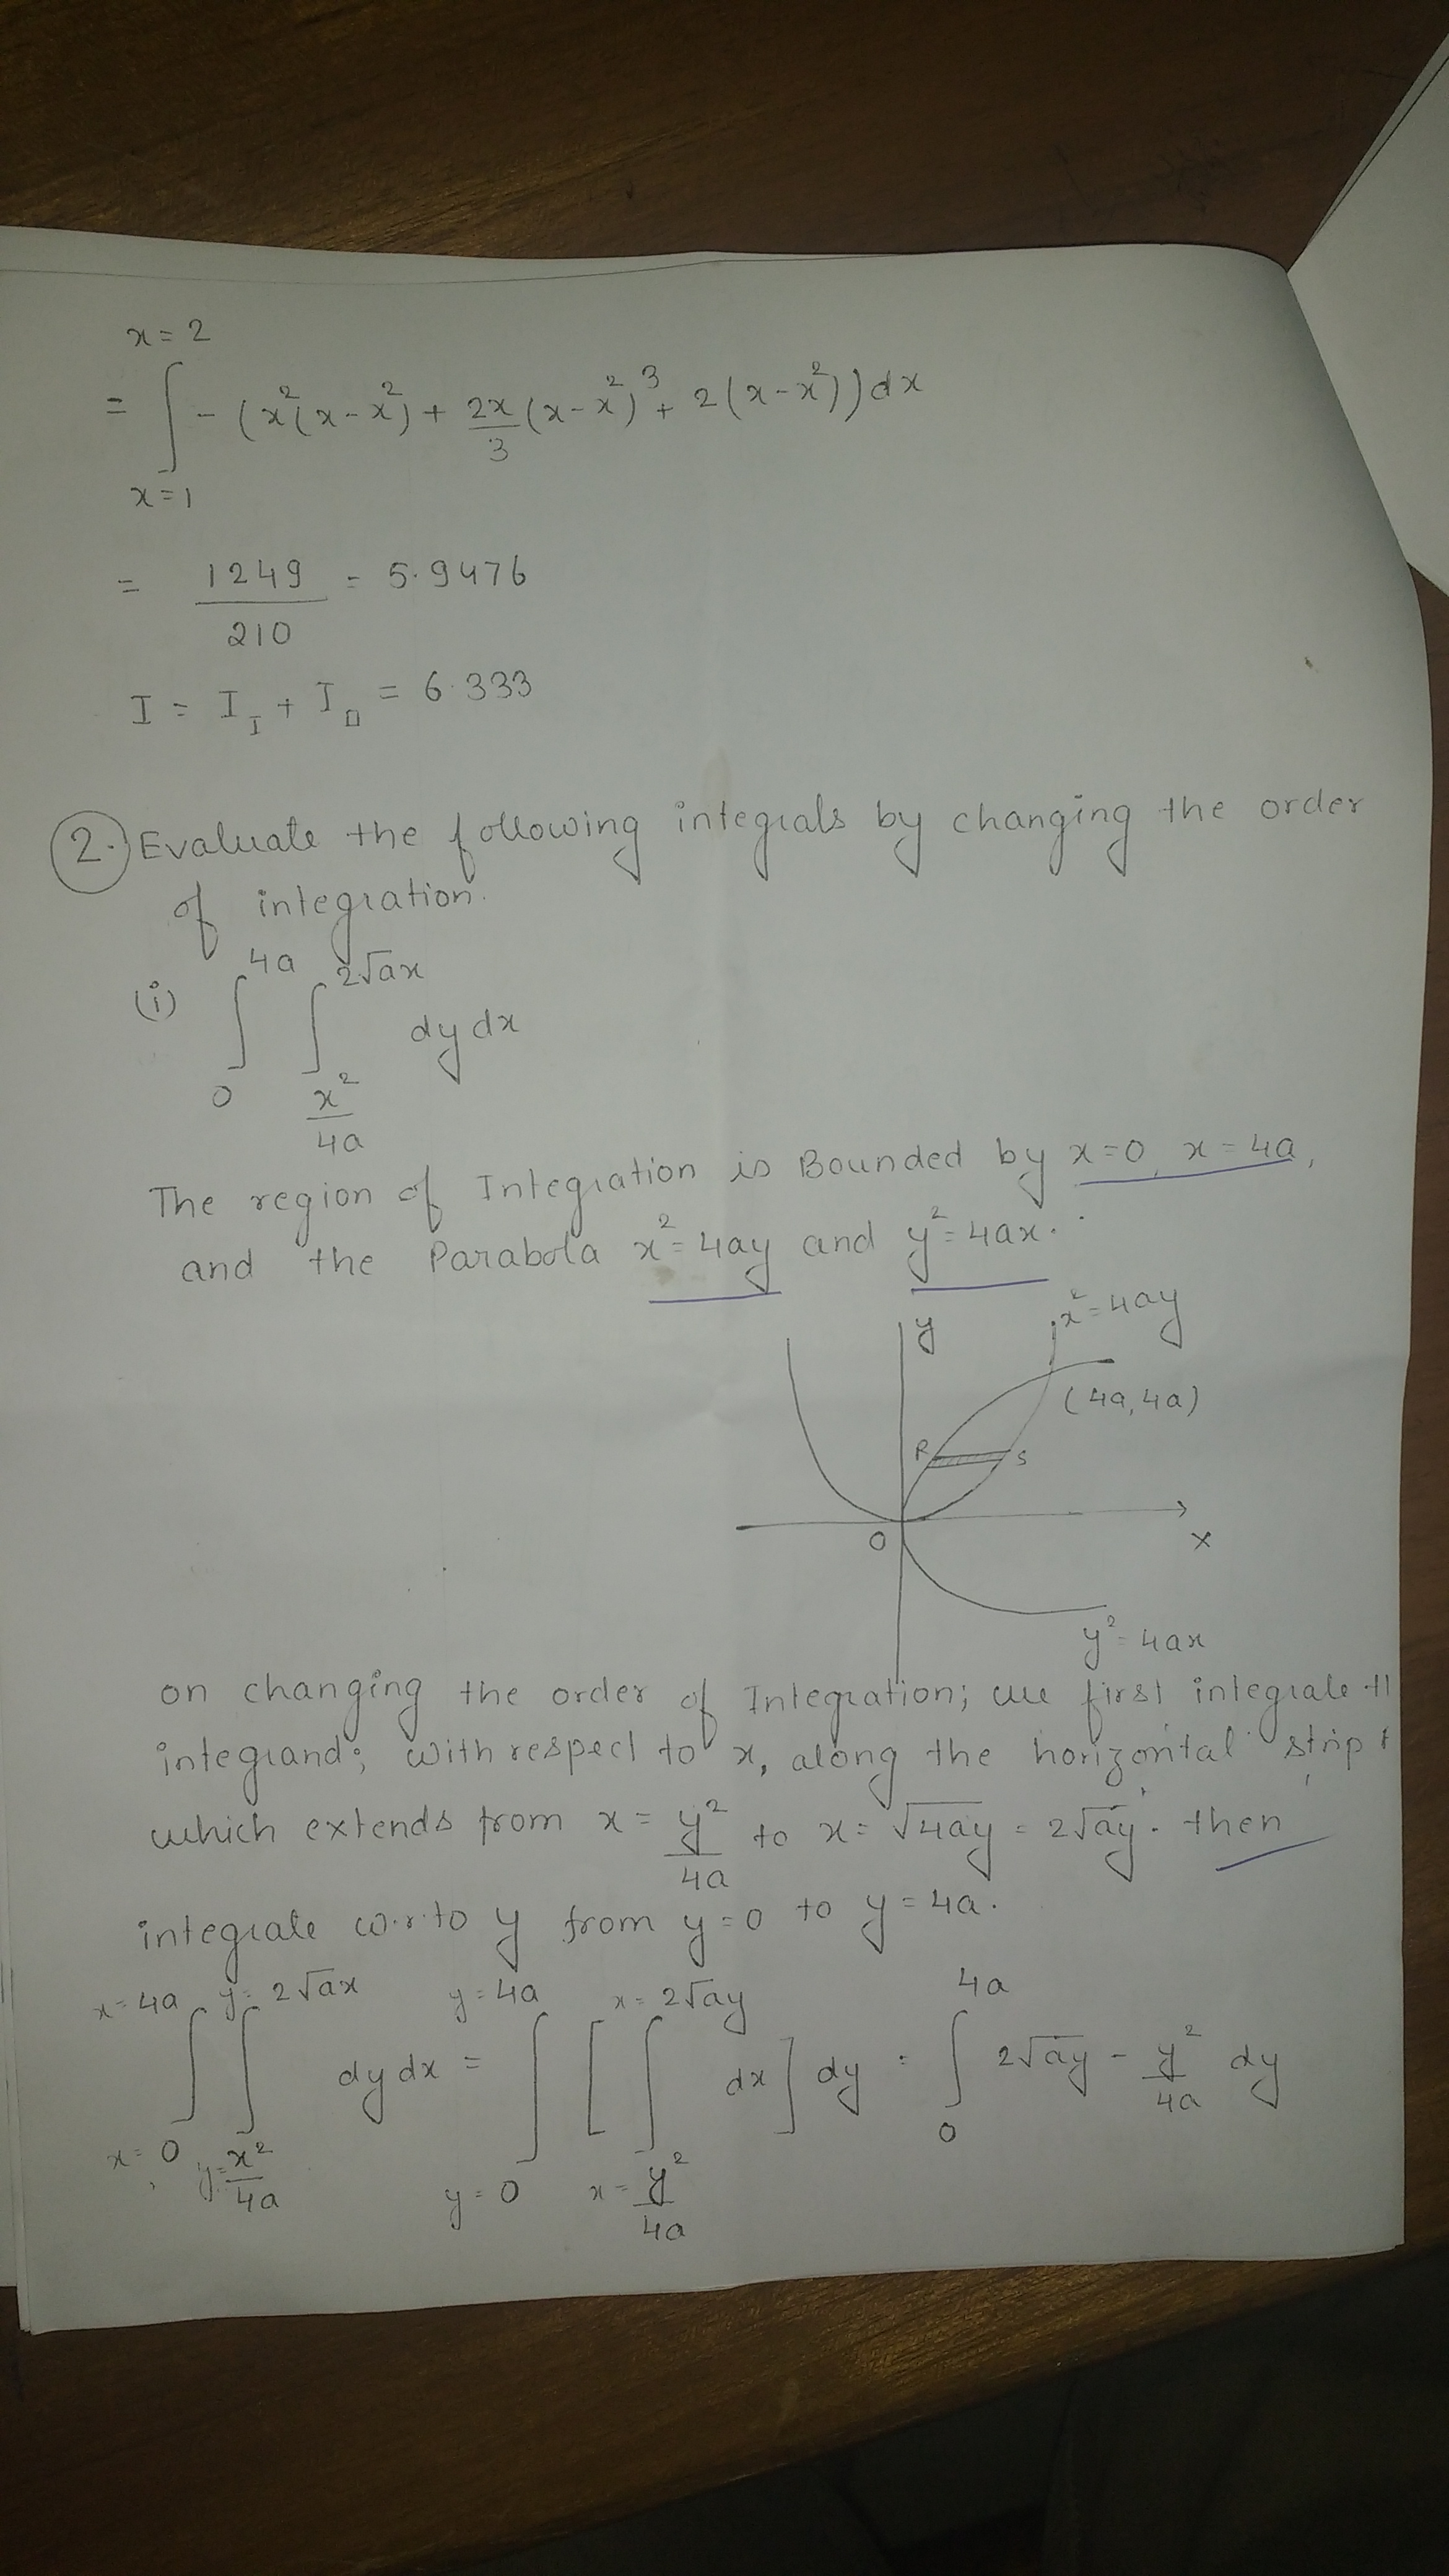 x=2
= ∫ -(x²(x-x²) + 2x/3 (x-x²)³ + 2(x-x²))dx
x=1
= 1249/210 = 5.9476
I = I_I + I_II = 6.333
2. Evaluate the following integrals by changing the order
of integration.
(i) ∫₀^4a ∫_{x²/4a}^{2√ax} dy dx
The region of Integration is Bounded by x=0, x=4a,
and the Parabola x²=4ay and y²=4ax.
y
x²=4ay
(4a,4a)
R S
O
x
y²=4ax
on changing the order of Integration; we first integrate
integrand; with respect to x, along the horizontal strip
which extends from x = y²/4a to x = √4ay = 2√ay. then
integrate w.r.to y from y=0 to y=4a.
∫_{x=0}^{x=4a} ∫_{y=x²/4a}^{y=2√ax} dy dx = ∫_{y=0}^{y=4a} [∫_{x=y²/4a}^{x=2√ay} dx] dy = ∫₀^4a 2√ay - y²/4a dy